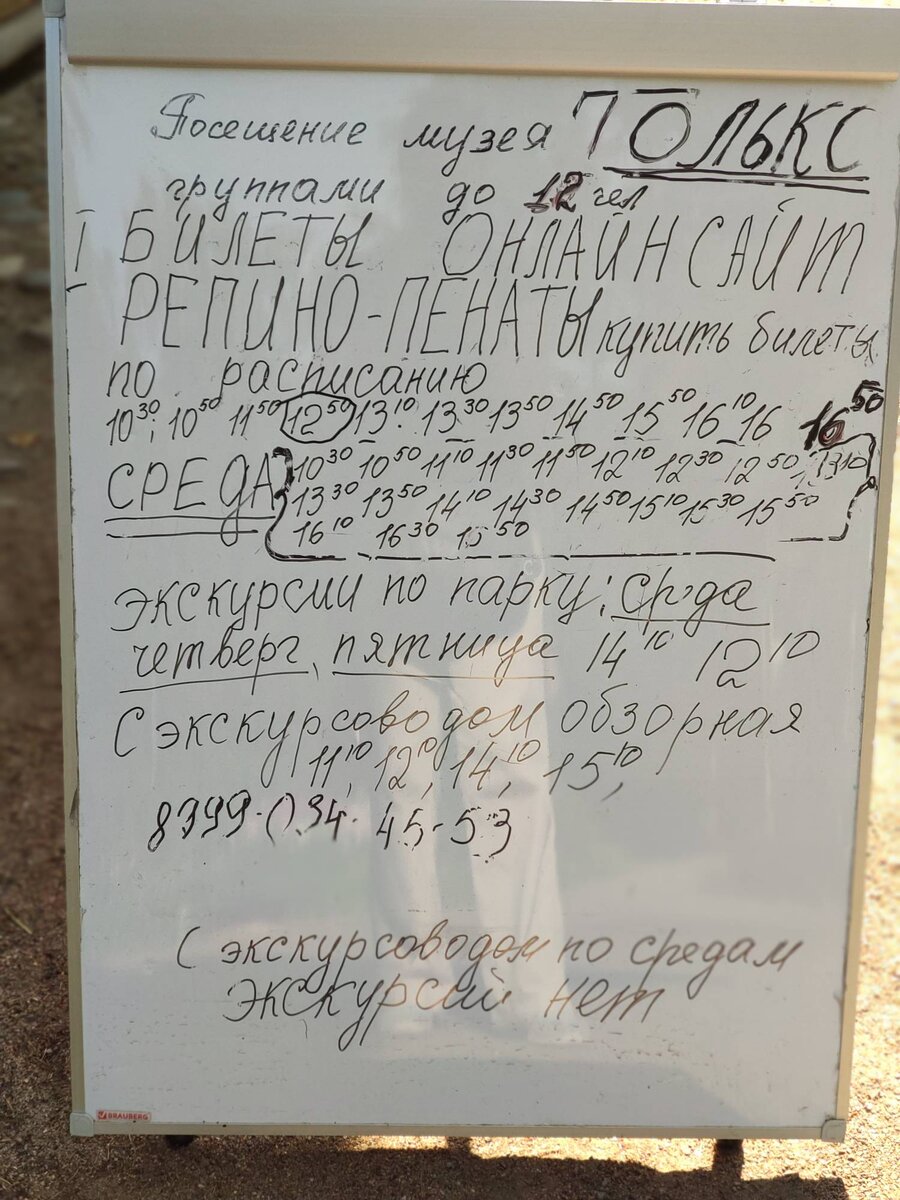 Посещение музея ТОЛЬКО
группами до 12 чел
I БИЛЕТЫ ОНЛАЙН САЙТ
РЕПИНО-ПЕНАТЫ купить билеты
по расписанию
10 30, 10 50 11 50 12 50 13 10 13 30 13 50 14 50 15 50 16 10 16 16 50
СРЕДА 10 30 10 50 11 10 11 30 11 50 12 10 12 30 12 50 13 10
13 30 13 50 14 10 14 30 14 50 15 10 15 30 15 50
16 10 16 30 50
экскурсии по парку: среда
четверг, пятница 14 10 12 10
С экскурсоводом обзорная
11 10, 12 10, 14 10, 15 10,
45-53
С экскурсоводом по средам
экскурсий нет
BRAUBERG